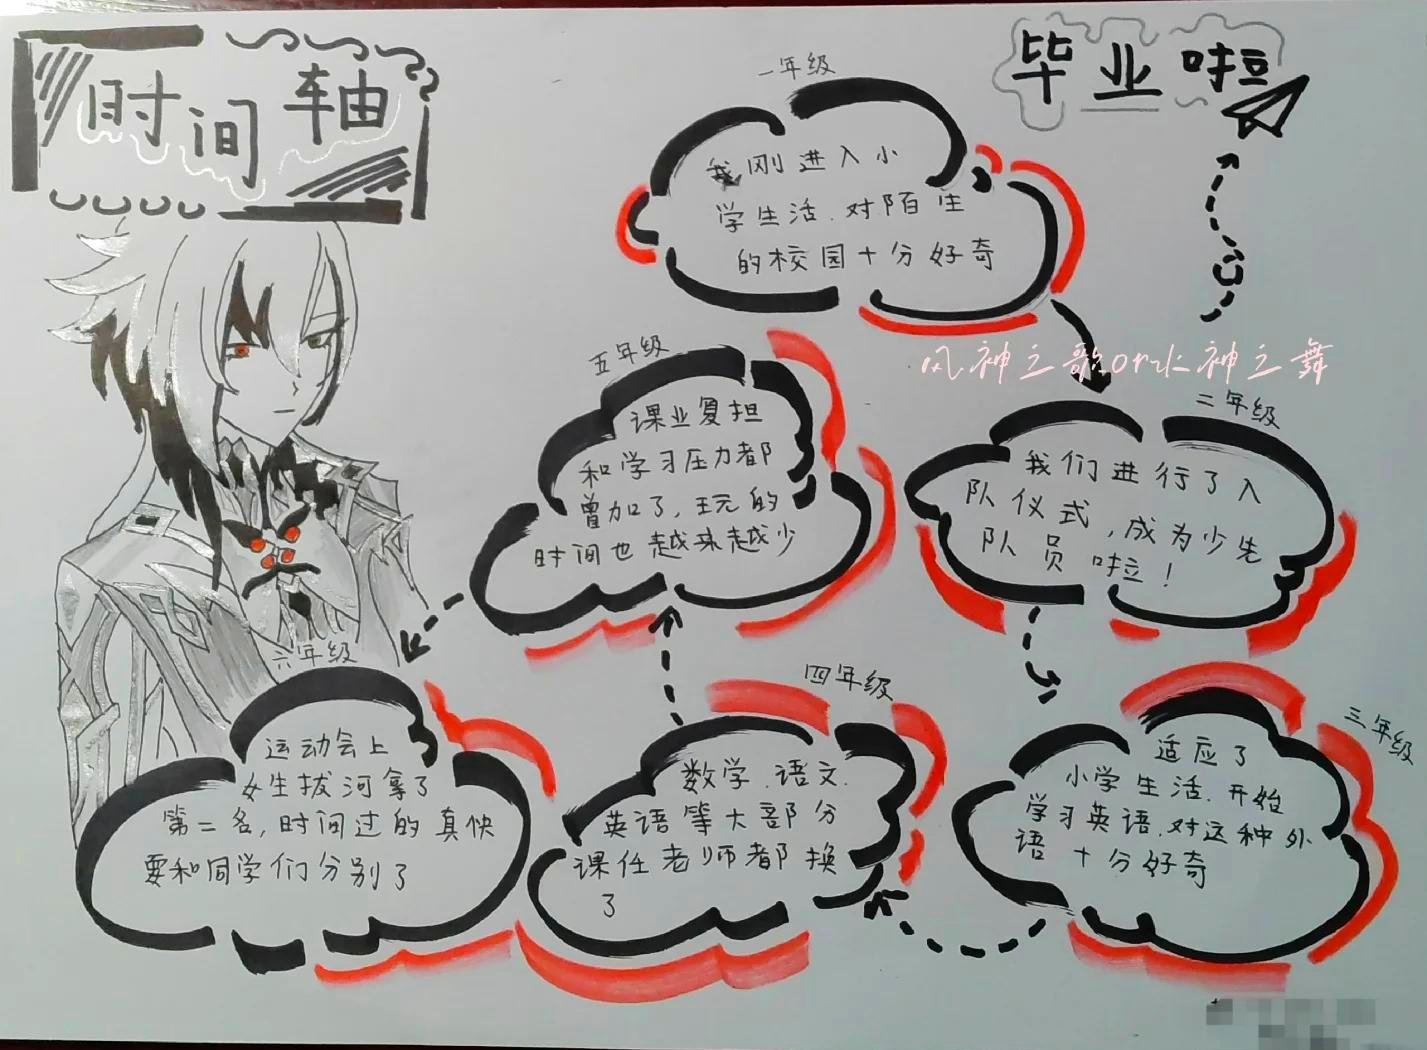 时间轴
毕业啦
一年级
我刚进入小
学生活.对陌生
的校园十分好奇
风神之歌or水神之舞
二年级
我们进行了入
队仪式,成为少先
队员啦!
三年级
适应了
小学生活.开始
学习英语.对这种外
语十分好奇
四年级
数学.语文.
英语等大部分
课任老师都换
了
五年级
课业复担
和学习压力都
曾加了,玩的
时间也越来越少
六年级
运动会上
女生拔河拿了
第二名,时间过的真快
要和同学们分别了